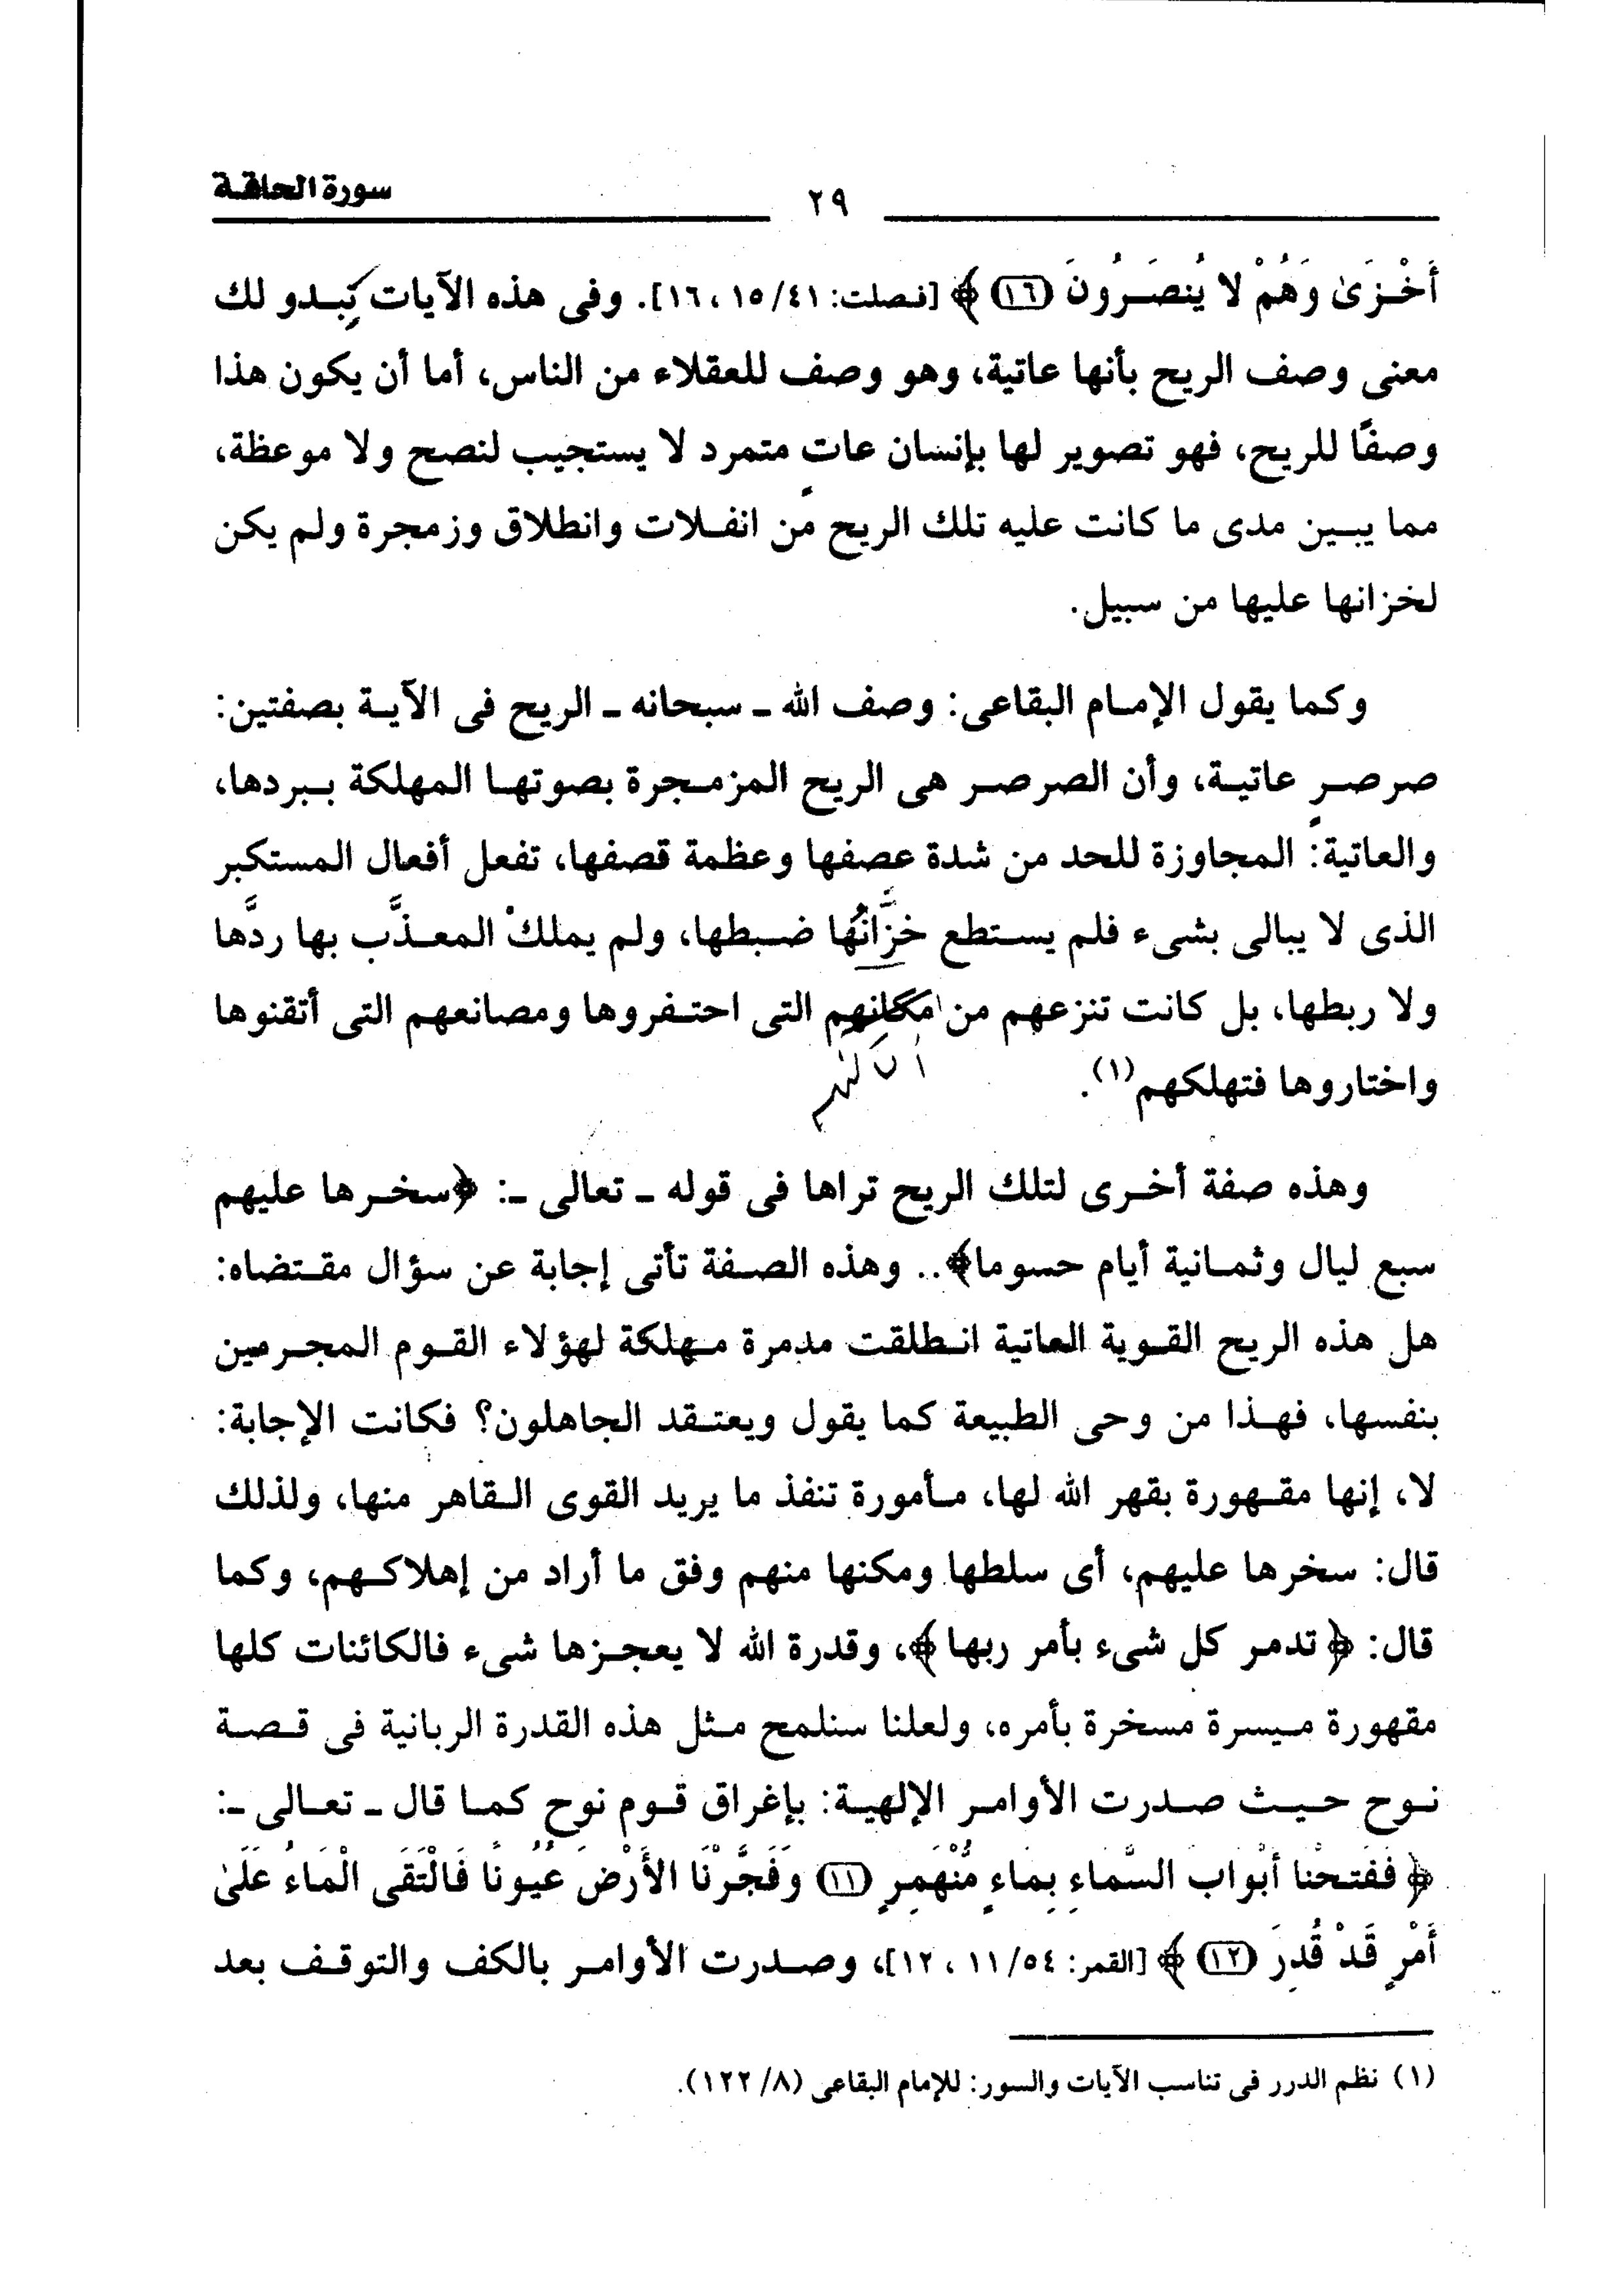 سورة الحاقة
٢٩
أَخْزَىٰ وَهُمْ لا يُنصَرُونَ (١٦) ﴾ [فصلت: ٤١/ ١٥، ١٦]. وفى هذه الآيات يبدو لك
معنى وصف الريح بأنها عاتية، وهو وصف للعقلاء من الناس، أما أن يكون هذا
وصفًا للريح، فهو تصوير لها بإنسان عاتٍ متمرد لا يستجيب لنصح ولا موعظة،
مما يبين مدى ما كانت عليه تلك الريح من انفلات وانطلاق وزمجرة ولم يكن
لخزانها عليها من سبيل.
وكما يقول الإمام البقاعى: وصف الله ـ سبحانه ـ الريح فى الآية بصفتين:
صرصرٍ عاتية، وأن الصرصر هى الريح المزمجرة بصوتها المهلكة ببردها،
والعاتية: المجاوزة للحد من شدة عصفها وعظمة قصفها، تفعل أفعال المستكبر
الذى لا يبالى بشىء فلم يستطع خزَّانُها ضبطها، ولم يملكْ المعذَّب بها ردَّها
ولا ربطها، بل كانت تنزعهم من مكانهم التى احتفروها ومصانعهم التى أتقنوها
واختاروها فتهلكهم(١).
وهذه صفة أخرى لتلك الريح تراها فى قوله ـ تعالى ـ: ﴿سخرها عليهم
سبع ليال وثمانية أيام حسوما﴾.. وهذه الصفة تأتى إجابة عن سؤال مقتضاه:
هل هذه الريح القوية العاتية انطلقت مدمرة مهلكة لهؤلاء القوم المجرمين
بنفسها، فهذا من وحى الطبيعة كما يقول ويعتقد الجاهلون؟ فكانت الإجابة:
لا، إنها مقهورة بقهر الله لها، مأمورة تنفذ ما يريد القوى القاهر منها، ولذلك
قال: سخرها عليهم، أى سلطها ومكنها منهم وفق ما أراد من إهلاكهم، وكما
قال: ﴿ تدمر كل شىء بأمر ربها ﴾، وقدرة الله لا يعجزها شىء فالكائنات كلها
مقهورة ميسرة مسخرة بأمره، ولعلنا سنلمح مثل هذه القدرة الربانية فى قصة
نوح حيث صدرت الأوامر الإلهية: بإغراق قوم نوح كما قال ـ تعالى ـ:
﴿ فَفَتَحْنَا أَبْوَابَ السَّمَاءِ بِمَاءٍ مُّنْهَمِرٍ (١١) وَفَجَّرْنَا الأَرْضَ عُيُونًا فَالْتَقَى الْمَاءُ عَلَىٰ
أَمْرٍ قَدْ قُدِرَ (١٢) ﴾ [القمر: ٥٤/ ١١، ١٢]، وصدرت الأوامر بالكف والتوقف بعد
(١) نظم الدرر فى تناسب الآيات والسور: للإمام البقاعى (٨/ ١٢٢).